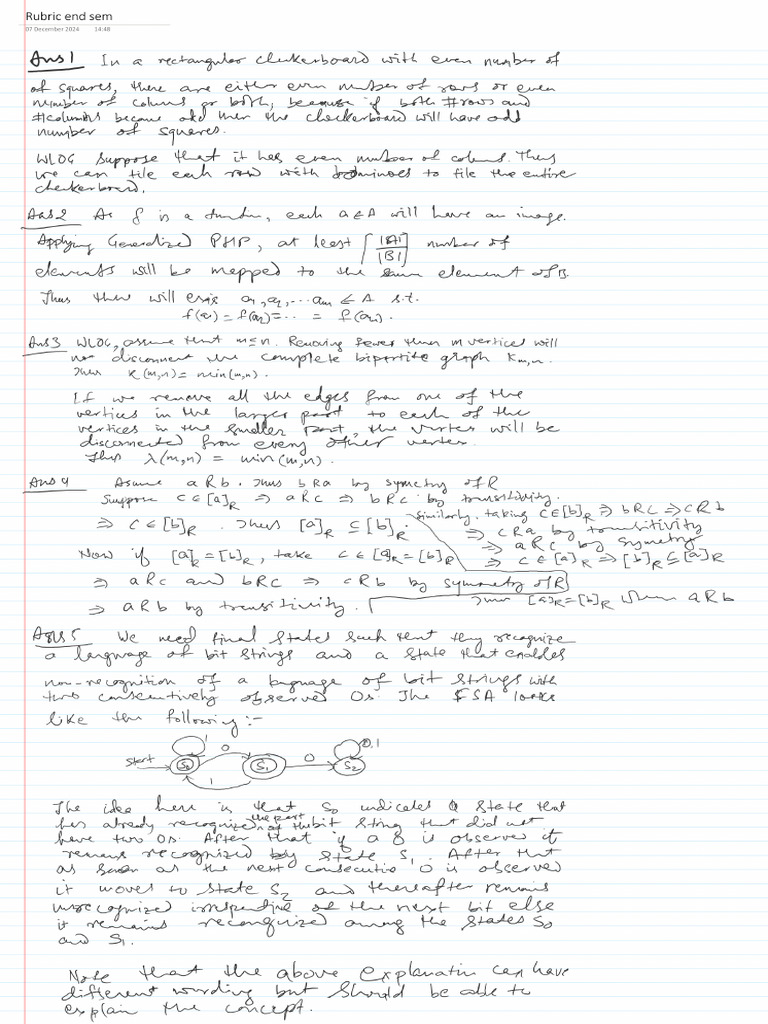 Rubric end sem
07 December 2024 14:48
Ans 1 In a rectangular checkerboard with even number of
of squares, there are either even number of rows or even
number of colums or both, because if both #rows and
#columns became odd then the checkerboard will have odd
number of squares.
WLOG suppose that it has even number of colums. Thus
we can tile each row with dominoes to tile the entire
checkerboard.
Ans 2 As f is a function, each a ∈ A will have an image.
Applying Generalized PHP, at least ⌈|A|/|B|⌉ number of
elements will be mapped to the same element of B.
Thus there will exist a₁, a₂, ... aₘ ∈ A s.t.
f(a₁) = f(a₂) = .. = f(aₘ).
Ans 3 WLOG, assume that m≤n. Removing fewer than m vertices will
not disconnect the complete bipartite graph Kₘ,ₙ.
Thus K(m,n) = min(m,n).
If we remove all the edges from one of the
vertices in the larger part to each of the
vertices in the smaller part, the vertex will be
disconnected from every other vertex.
Thus λ(m,n) = min(m,n).
Ans 4 Assume aRb. Thus bRa by symetry of R
Suppose c ∈ [a]R ⇒ aRc ⇒ bRc by transitivity.
⇒ c ∈ [b]R. Thus [a]R ⊆ [b]R.
Similarly, taking c ∈ [b]R ⇒ bRc ⇒ cRb
⇒ cRa by transitivity
⇒ aRc by symetry
⇒ c ∈ [a]R ⇒ [b]R ⊆ [a]R
Thus [a]R = [b]R when aRb
Now if [a]R = [b]R, take c ∈ [a]R = [b]R
⇒ aRc and bRc ⇒ cRb by symmetry of R
⇒ aRb by transitivity.
Ans 5 We need final states such that they recognize
a language of bit strings and a state that enables
non-recognition of a language of bit strings with
two consecutively observed 0s. The FSA looks
like the following :-
start S₀ 1 0 1 S₁ 0 S₂ 0,1
The idea here is that S₀ indicates a state that
has already recognized the part of the bit string that did not
have two 0s. After that if a 0 is observed it
remains recognized by state S₁. After that
as soon as the next consecutive 0 is observed
it moves to state S₂ and thereafter remains
unrecognized irrespective of the next bit else
it remains recongnized among the states S₀
and S₁.
Note that the above explanation can have
different wording but should be able to
explain the concept.